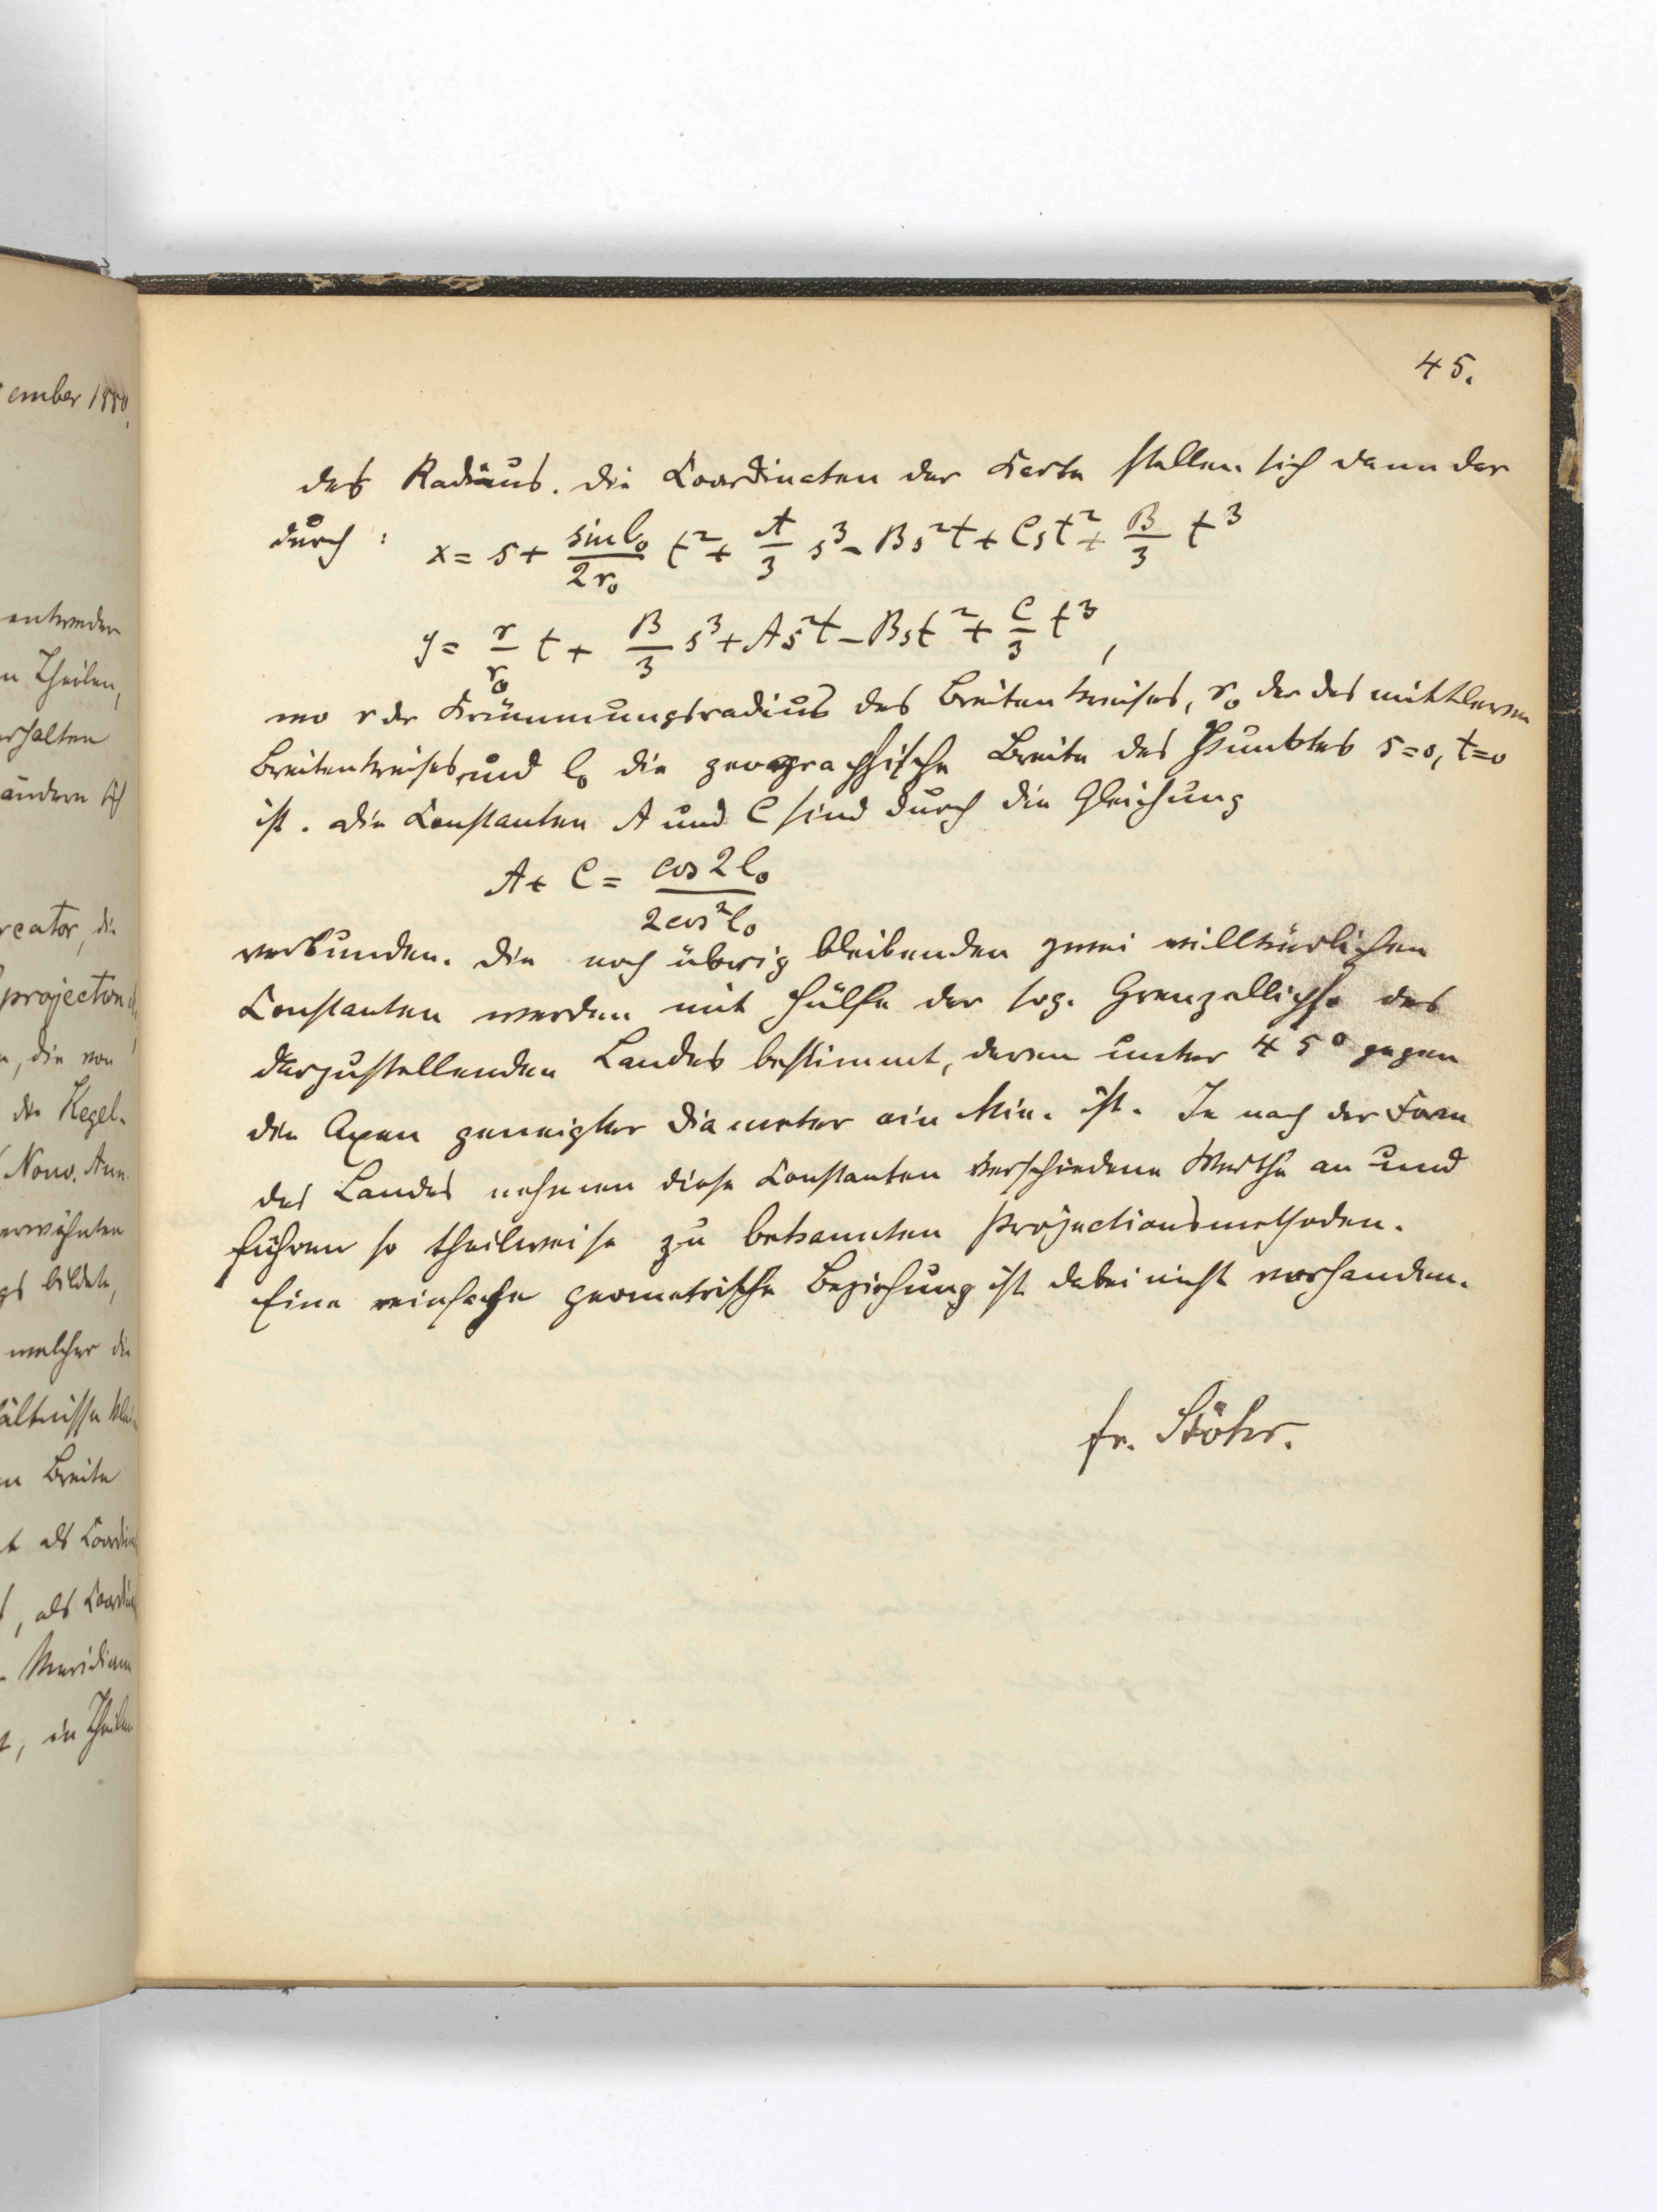 ember 1880.
entweder
n Theilen,
erhalten
ändern sich
rcator, die
projection
n, die von
die Kegel-
(Nouv. Ann.
erwähnten
gs bildete,
welcher die
ältnisse
n Breite
t als
, als
Meridian
t, in Theilen
45.
des Radius. Die Coordinaten der Karte stellen sich dann dar
durch: x = s + sin l₀/2r₀ t² + A/3 s³ - Bs²t + Cst² + B/3 t³
y = r/r₀ t + B/3 s³ + As²t - Bst² + C/3 t³,
wo r der Krümmungsradius des Breitenkreises, r₀ der des mittleren
Breitenkreises, und l₀ die geographische Breite des Punktes s=0, t=0
ist. Die Constanten A und C sind durch die Gleichung
A + C = cos 2l₀/2cos²l₀
verbunden. Die noch übrig bleibenden zwei willkürlichen
Constanten werden mit Hülfe der sog. Grenzellipse des
darzustellenden Landes bestimmt, deren unter 45° gegen
die Axen geneigter Diameter ein Min. ist. Je nach der Form
des Landes nehmen diese Constanten verschiedene Werthe an und
führen so theilweise zu bekannten Projectionsmethoden.
Eine einfache geometrische Beziehung ist dabei nicht vorhanden.
Fr. Stöhr.